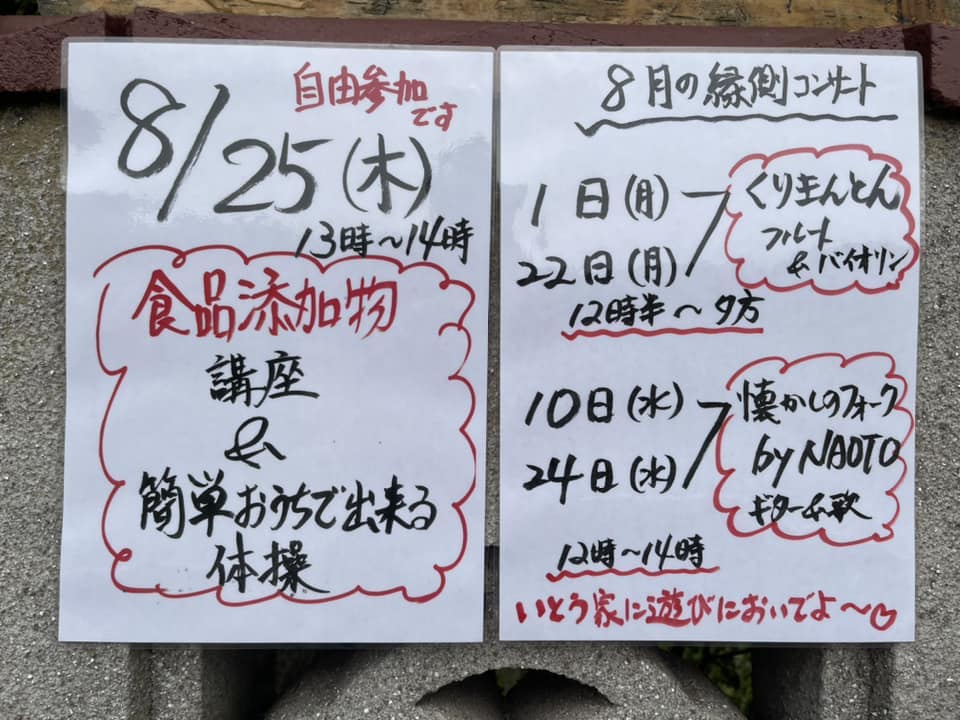 自由参加
です
8/25(木)
13時〜14時
食品添加物
講座
&
簡単おうちで出来る
体操
8月の縁側コンサート
1日(月)
22日(月)
くり主んとん
フルート
&バイオリン
12時半〜夕方
10日(水)
24日(水)
懐かしのフォーク
by NAOTO
ギター&歌
12時〜14時
いとう家に遊びにおいでよ〜♡